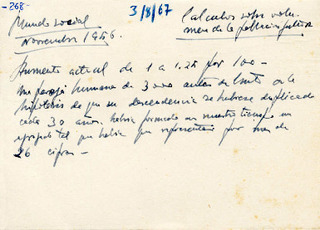 -268-
Mundo social
Noviembre 1956.
3/8/67
Calculos sobre volu-
men de la poblacion futura
Aumento actual de 1 a 1.25 por 100 -
Una pareja humana de 3000 antes de Cristo en la
hipótesis de que su descendencia se hubiese duplicado
cada 30 años habria formado en nuestro tiempo un
que habria que representar por una de
26 cifras -